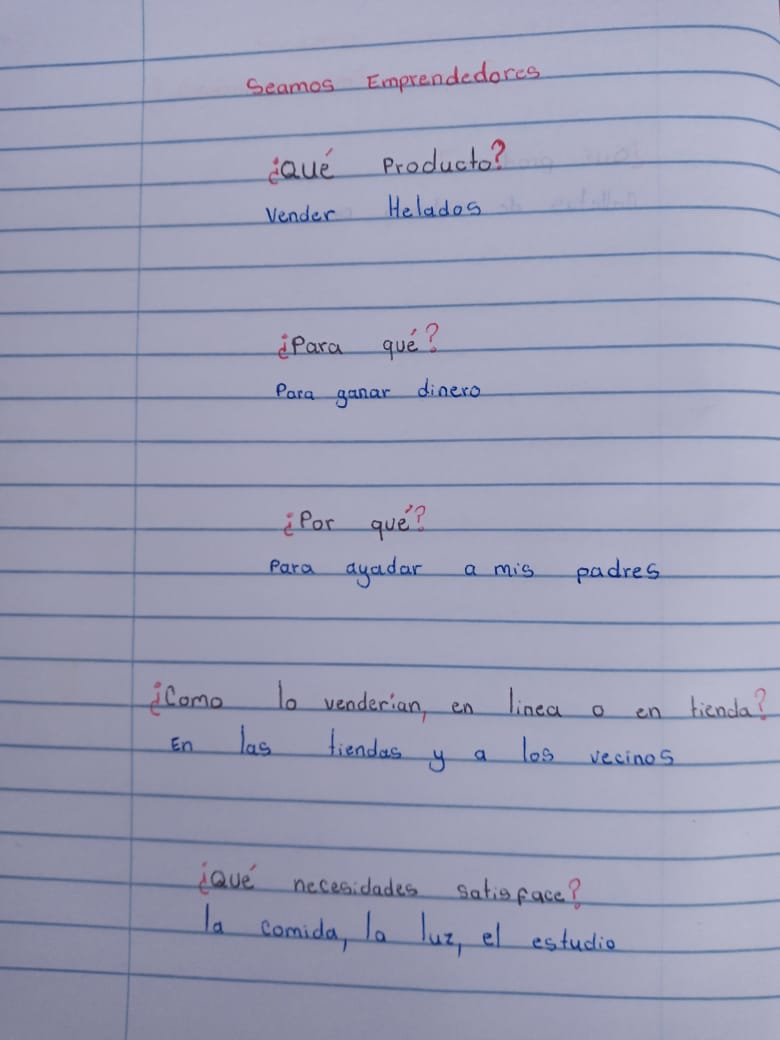 Seamos Emprendedores
¿Qué Producto?
Vender Helados
¿Para qué?
Para ganar dinero
¿Por qué?
Para ayadar a mis padres
¿Como lo venderian, en linea o en tienda?
En las tiendas y a los vecinos
¿Qué necesidades satisface?
la comida, la luz, el estudio